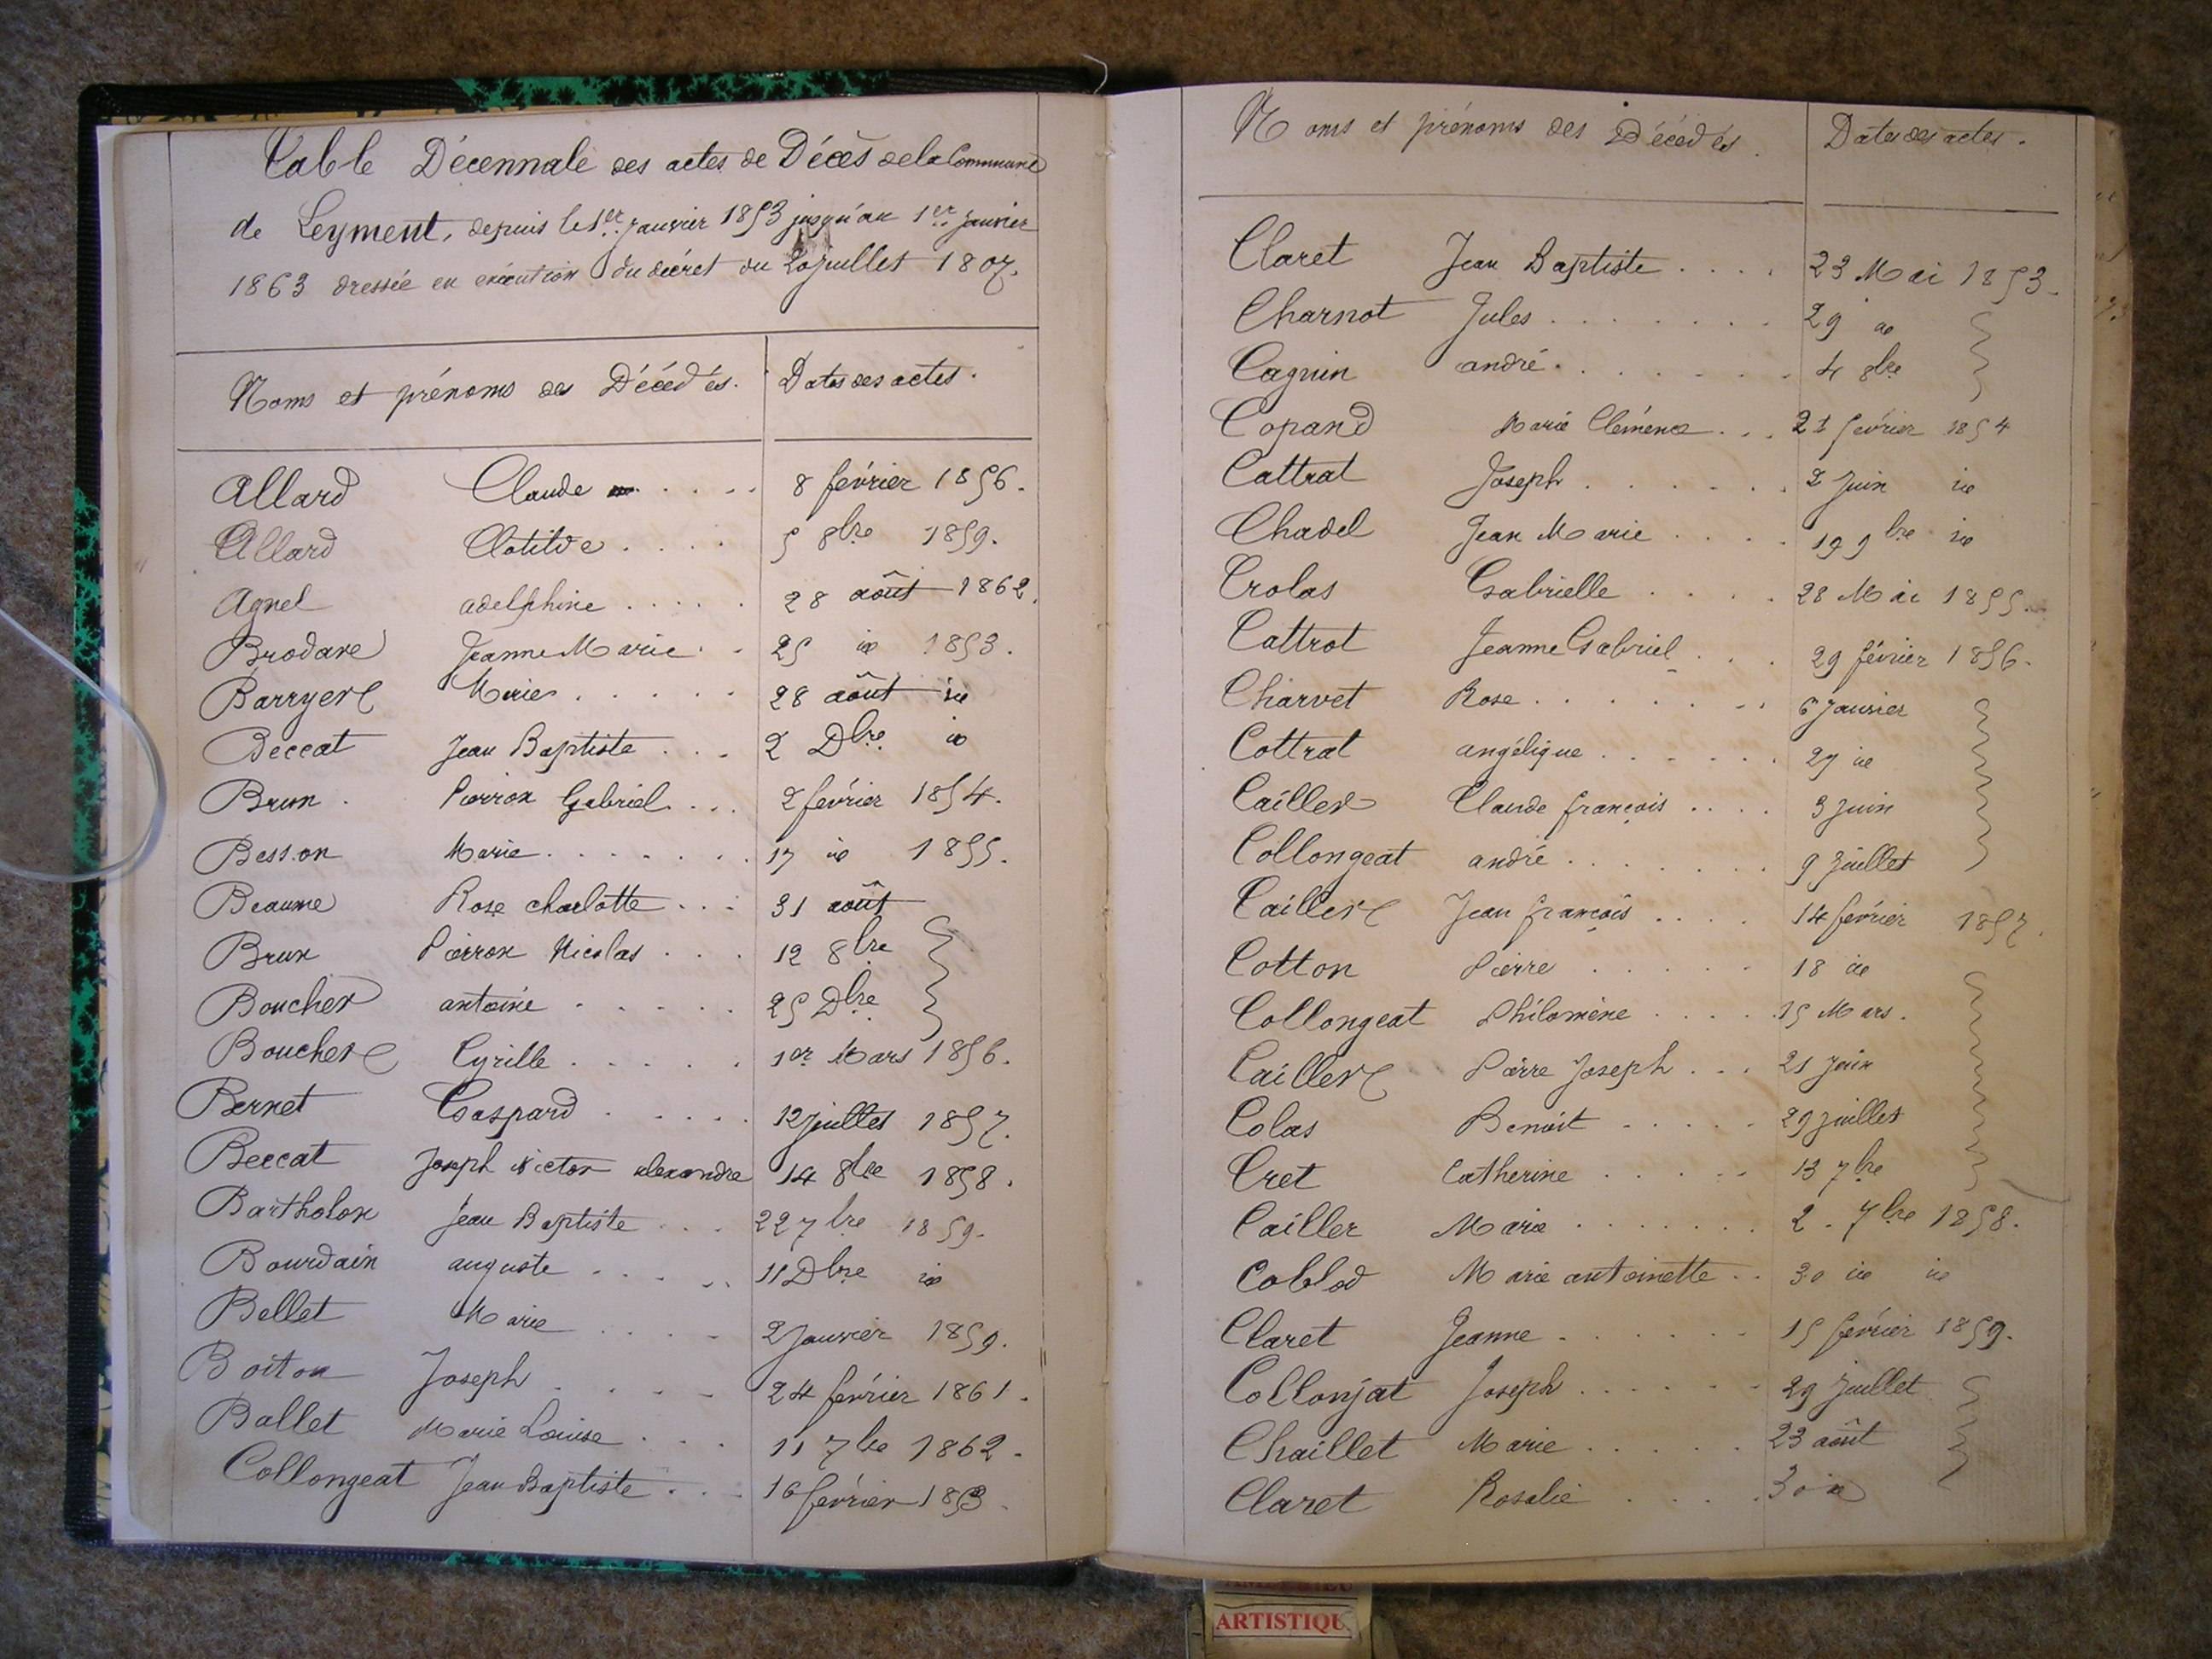 Table Décennale des actes de Décès de la Commune
de Leyment, depuis le 1er Janvier 1853 jusqu'au 1er Janvier
1863 dressée en exécution du décret du 20 Juillet 1807.
Noms et prénoms des Décédés. Dates des actes.
Allard Claude .... 8 février 1856.
Allard Clotilde .... 5 8bre 1859.
Agnel adelphine ..... 28 août 1862.
Brodare Jeanne Marie .. 25 id 1853.
Marie ..... 28 août id
Beccat Jean Baptiste ... 2 Dbre id
Brun Pierron Gabriel ... 2 février 1854.
Besson Marie ....... 17 id 1855.
Beaume Rose charlotte ... 31 août
Brun Pierron Nicolas ... 12 8bre
Boucher antoine ..... 25 Dbre
Boucher Cyrille ..... 1er Mars 1856.
Bernet Gaspard ..... 12 juillet 1857.
Beccat Joseph Victor alexandre 14 8bre 1858.
Bartholon Jean Baptiste ... 22 7bre 1859.
Bourdain auguste ..... 11 Dbre id
Bellet Marie .... 2 Janvier 1859.
Boiton Joseph .... 24 février 1861.
Ballet Marie Louise ... 11 7bre 1862.
Collongeat Jean Baptiste ... 16 février 1853.
Noms et prénoms des Décédés. Dates des actes.
Claret Jean Baptiste .... 23 Mai 1853.
Charnot Jules ....... 29 id
Caguin andré ....... 4 8bre
Copand Marie Clémence ... 21 février 1854
Cattrat Joseph ...... 2 Juin id
Chadel Jean Marie .... 19 9bre id
Crolas Gabrielle .... 28 Mai 1855.
Cattrot Jeanne Gabriel ... 29 février 1856.
Charvet Rose ....... 6 Janvier
Cottrat angélique ...... 27 id
Cailler Claude françois .... 3 Juin
Collongeat andré ....... 9 Juillet
Cailler Jean françois .... 14 février 1857.
Cotton Pierre ..... 18 id
Collongeat Philomène .... 15 Mars.
Cailler Pierre Joseph ... 21 Juin
Colas Benoit ..... 29 juillet
Cret Catherine .... 13 7bre
Cailler Marie ....... 2. 7bre 1858.
Coblod Marie antoinette .. 30 id id
Claret Jeanne ...... 15 février 1859.
Collonjat Joseph ...... 29 Juillet
Chaillet Marie ..... 23 août
Claret Rosalie .... 30 id
ARTISTIQU